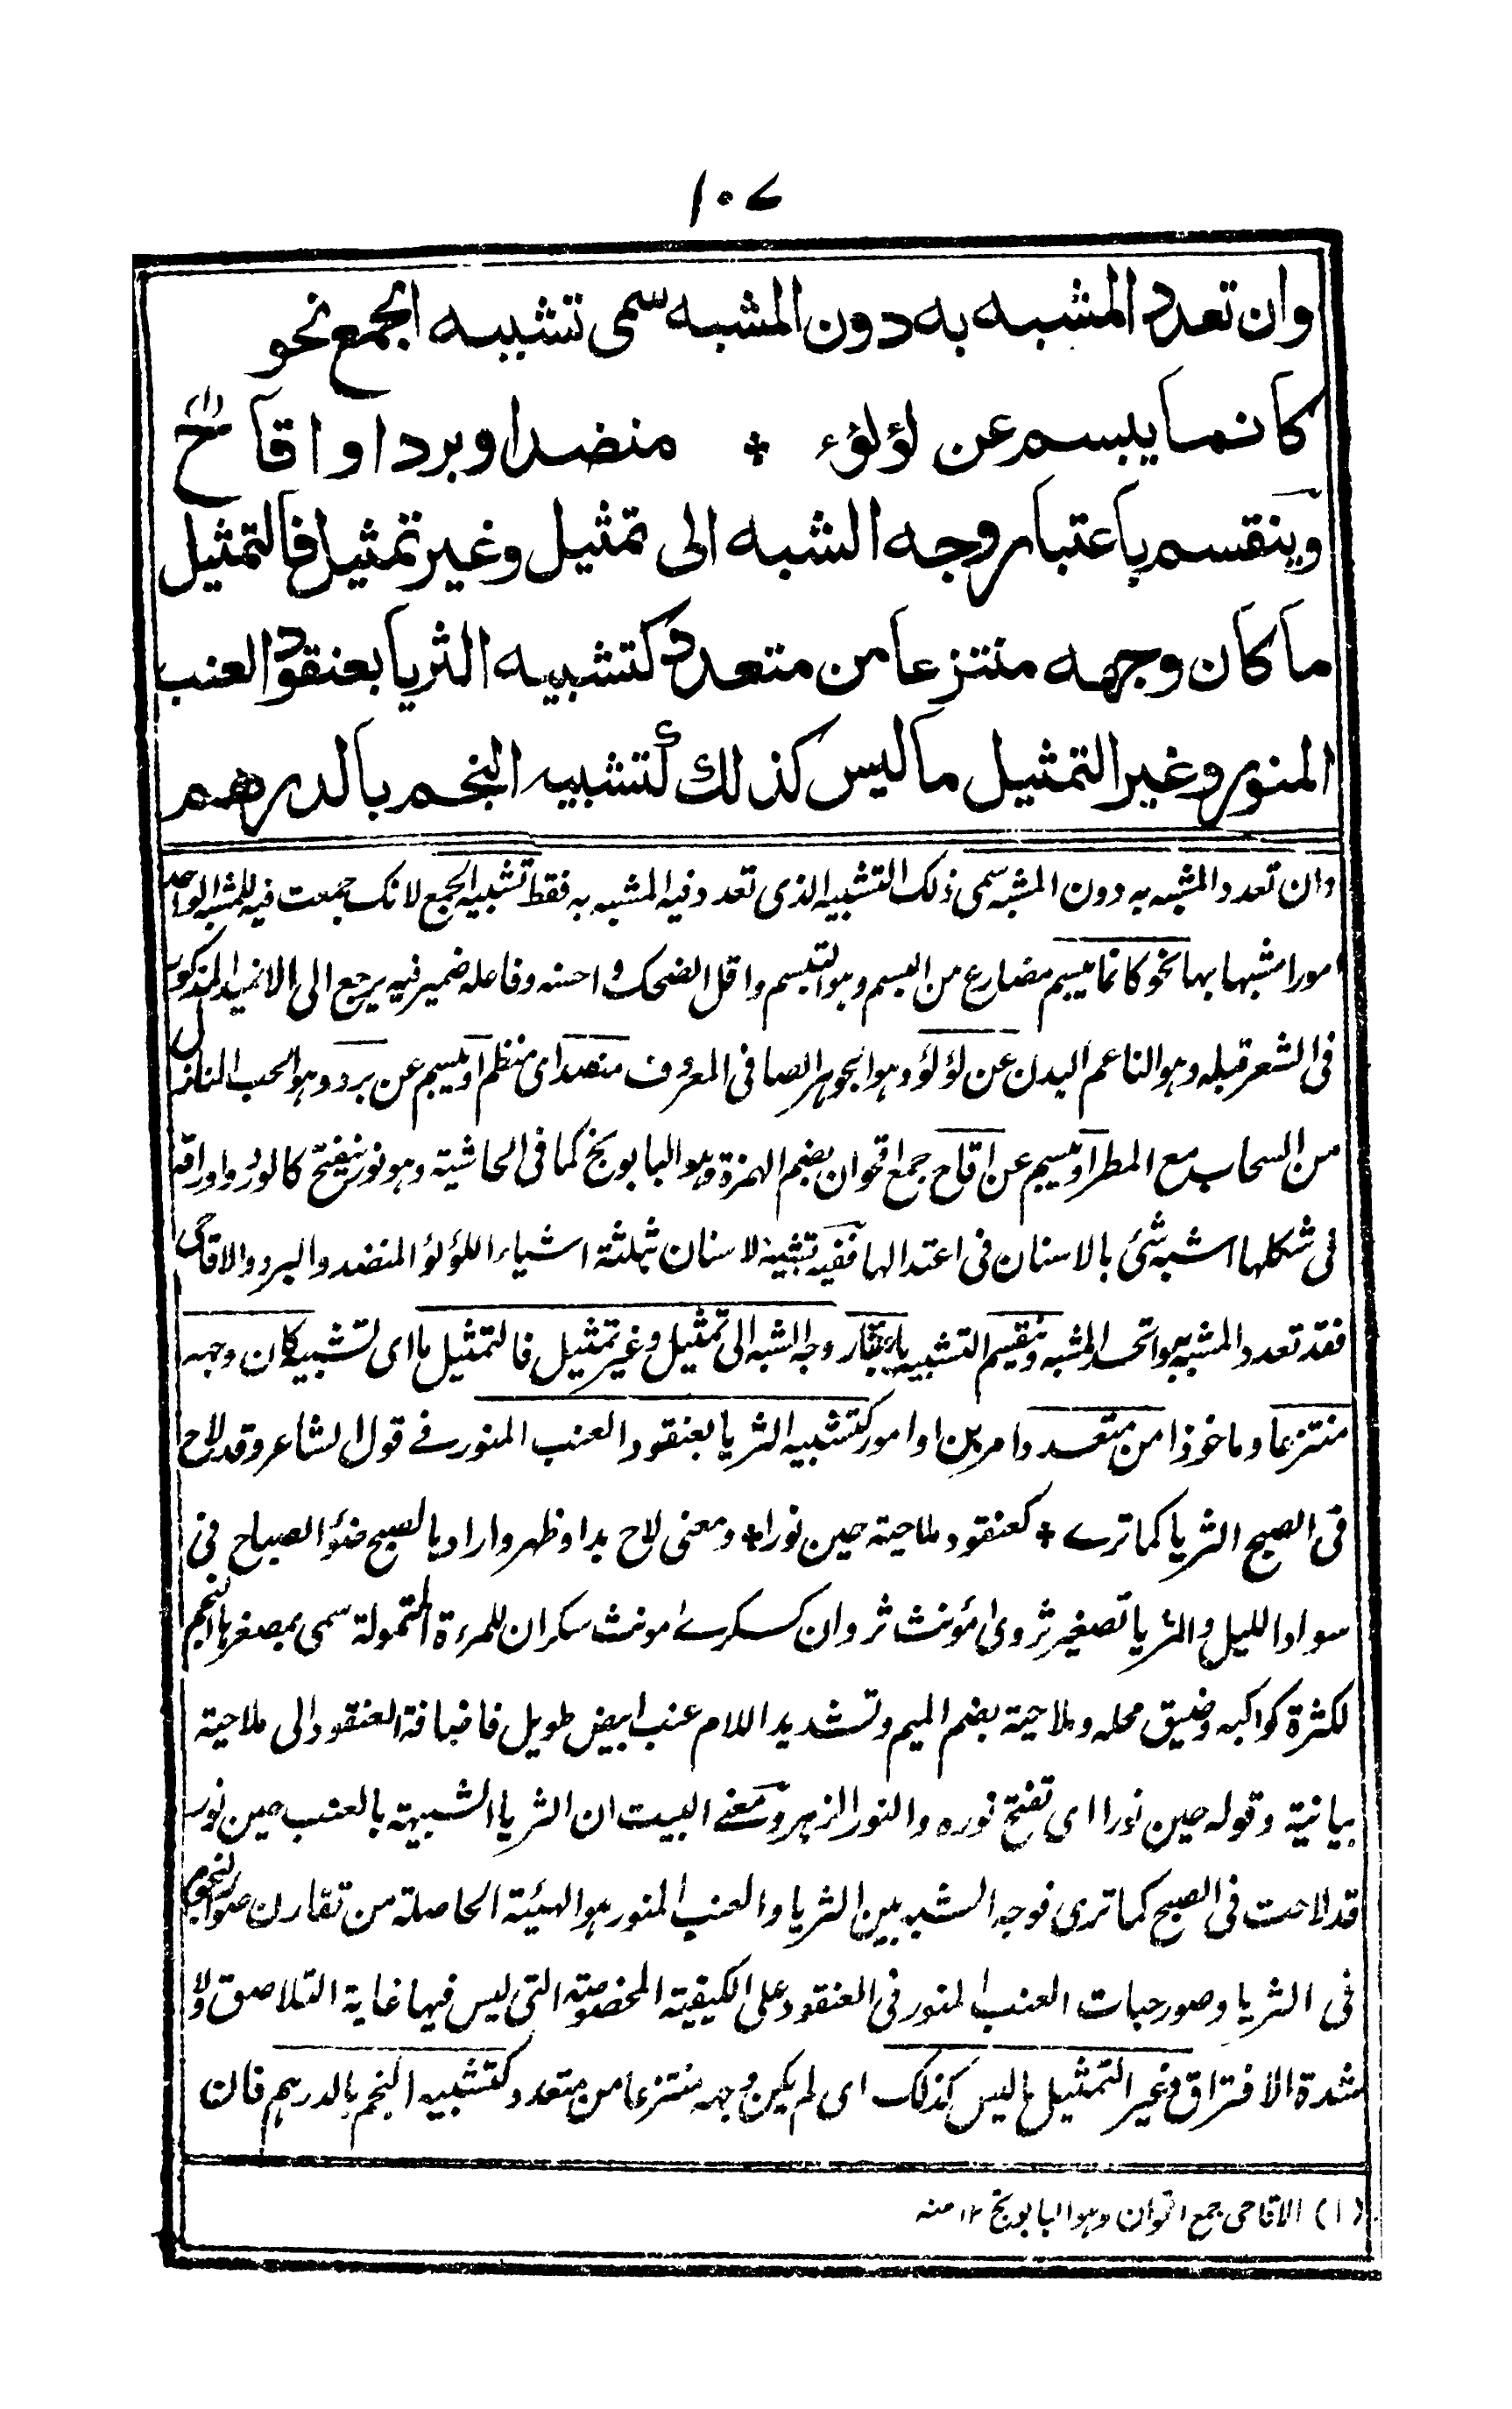 ١٠٧
وان تعدد المشبه به دون المشبه سمى تشبيه الجمع نحو
كانما يبسم عن لؤلؤء + منضدا و برد او اقاح (١)
وينقسم باعتبار وجه الشبه الى تمثيل وغير تمثيل فالتمثيل
ما كان وجهه منتزعا من متعدد كتشبيه الثريا بعنقود العنب
المنور وغير التمثيل ما ليس كذلك كتشبيه النجم بالدرهم
وان تعدد المشبه به دون المشبه سمى ذلك التشبيه الذى تعدد فيه المشبه به فقط تشبيه الجمع لانك جمعت فيه للمشبه الواحد
امورا مشبها بها نحو كانما يبسم مضارع من البسم وهو التبسم واقل الضحك واحسنه وفاعله ضمير فيه يرجع الى الاغيد المذكور
فى الشعر قبله وهو الناعم البدن عن لؤلؤ وهو الجوهر الصافى المعروف منضد اى منظم او يبسم عن برد وهو الحب النازل
من السحاب مع المطر او يبسم عن اقاح جمع اقحوان بضم الهمزة وهو البابونج كما فى الحاشية وهو نور ينفتح كالورد واوراقه
فى شكلها اشبه شئ بالاسنان فى اعتدالها ففيه تشبيه الاسنان بثلثة اشياء اللؤلؤ المنضد والبرد والاقاحى
فقد تعدد المشبه به واتحد المشبه وينقسم التشبيه باعتبار وجه الشبه الى تمثيل وغير تمثيل فالتمثيل ما اى تشبيه كان وجهه
منتزعا وماخوذا من متعدد امرين او امور كتشبيه الثريا بعنقود العنب المنور فے قول الشاعر وقد لاح
فى الصبح الثريا كما ترے + كعنقود ملاحية حين نورا + ومعنى لاح بدا وظهر واراد بالصبح ضوأ الصباح فى
سواد الليل والثريا تصغير ثروى مؤنث ثروان كسكرے مونث سكران للمرءة المتمولة سمى بمصغرها النجم
لكثرة كواكبه وضيق محله وملاحية بضم الميم وتشديد اللام عنب ابيض طويل فاضافة العنقود الى ملاحية
بيانية وقوله حين نورا اى تفتح نوره والنور الزهر ومعنے البيت ان الثريا الشبيهة بالعنب حين نور
قد لاحت فى الصبح كما ترى فوجه الشبه بين الثريا والعنب المنور هو الهيئة الحاصلة من تقارن صور النجوم
فى الثريا وصور حبات العنب المنور فى العنقود على الكيفية المخصوصة التى ليس فيها غاية التلاصق ولا
شدة الافتراق وغير التمثيل ما ليس كذلك اى لم يكن وجهه منتزعا من متعدد كتشبيه النجم بالدرهم فان
(١) الاقاحى جمع اقحوان وهو البابونج ١٢ منه